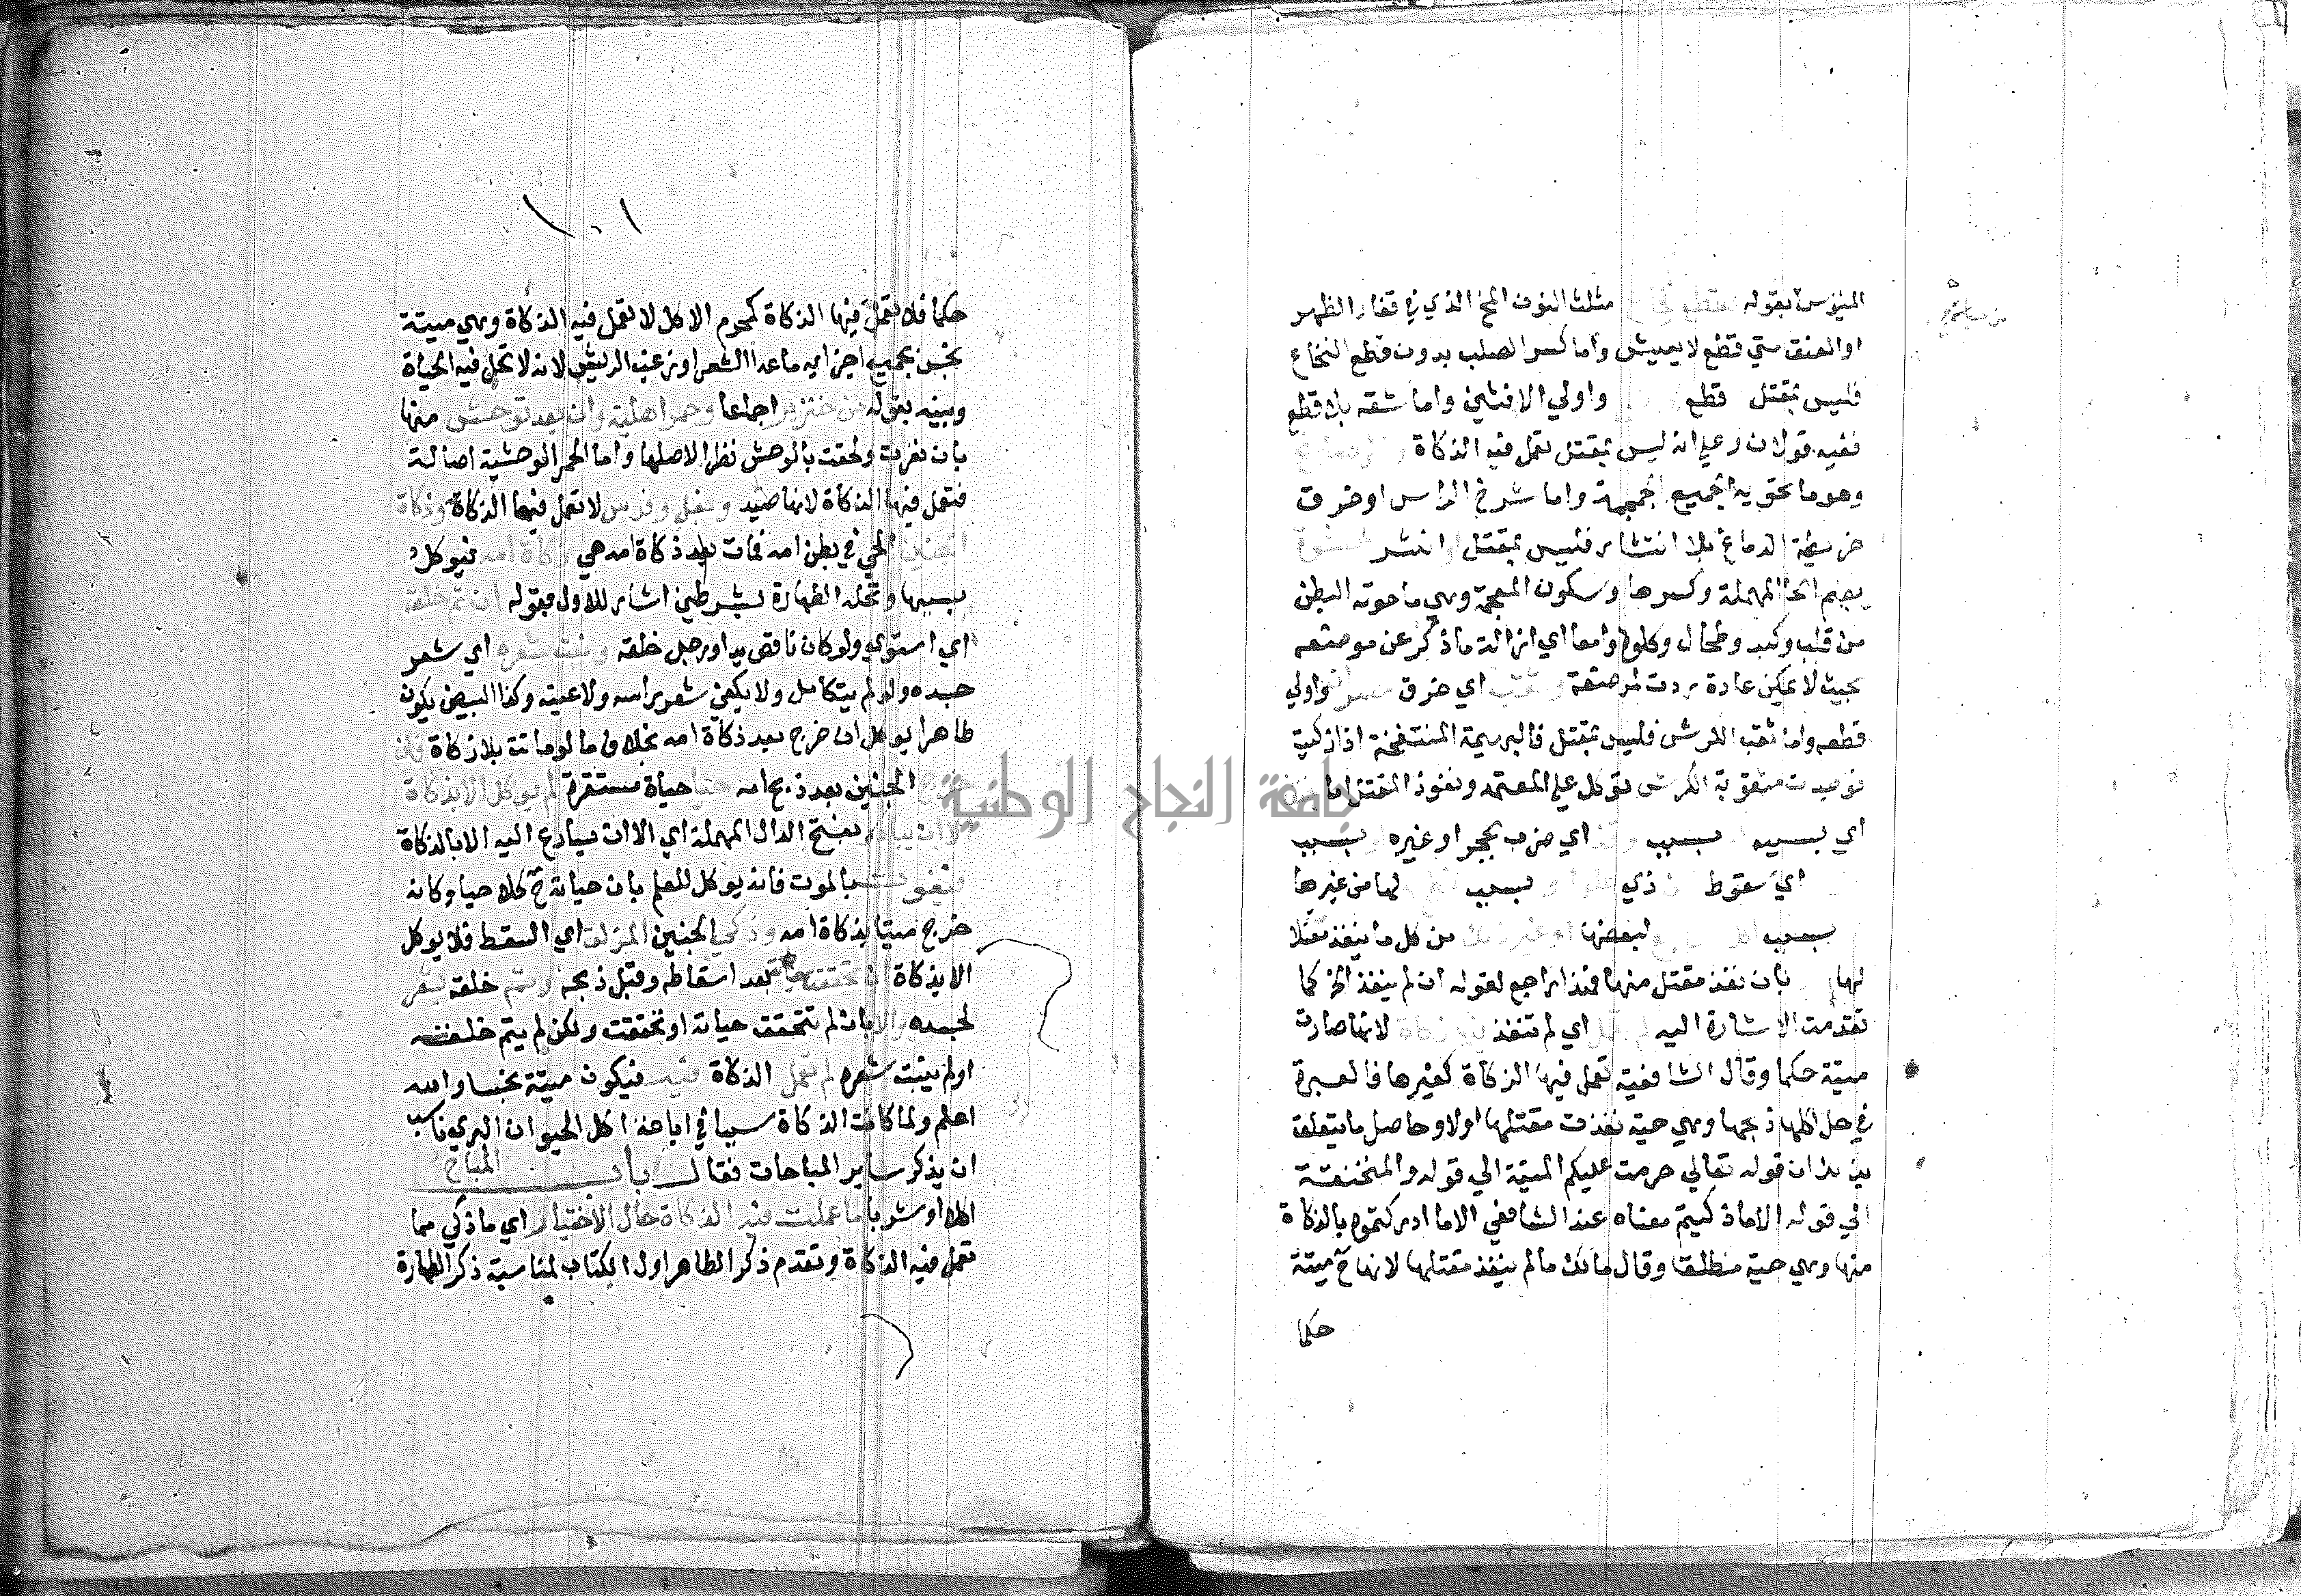 الميؤس بقوله بقطع نخاع مثلث النون المخ الذي في فقار الظهر
او العنق متي قطع لا يعيش واما كسر الصلب بدون قطع النخاع
فليس بمقتل قطع واولي الافثين واما شقه بلا قطع
ففيه قولان وعلي انه ليس بمقتل تعمل فيه الذكاة
وهو ما تحويه الجميع الجمجمة واما شرخ الراس او خرق
خريطة الدماغ بلا انتشار فليس بمقتل او انثر حشوة
بضم الحا المهملة وكسرها وسكون المعجمة وهي ما حوته البطن
من قلب وكبد وطحال وكلوة وامعا اي ازالة ما ذكر عن موضعه
بحيث لا يمكن عادة ردت لموضعة وثقب اي خرق مصران واولي
قطعه واما ثقب الكرش فليس بمقتل فالبهيمة المنتفخة اذا ذكيت
فوجدت مثقوبة الكرش توكل علي المعتمد ونفوذ المقتل اما
اي بسببه بسبب اي ضرب بحجر او غيره بسبب
اي سقوط ذي علو او بسبب لها من غيرها
بسبب اكل سبع لبعضها او غير ذلك من كل ما ينفذ مقتلا
لها بان نفذ مقتل منها فهذا راجع لقوله ان لم ينفذ الخ كما
تقدمت الاشارة اليه لم تعمل اي لم تنفذ ذكاة لانها صارت
ميتة حكما وقال الشافعية تعمل فيها الذكاة كغيرها فالعبرة
في حل اكلها ذبحها وهي حية نفذت مقتلها اولا وحاصل ما يتعلق
بذلك ان قوله تعالي حرمت عليكم الميتة الي قوله والمنخنقة
الي قوله الا ما ذكيتم معناه عند الشافعي الا ما ادركتموه بالذكاة
منها وهي حية مطلقا وقال مالك ما لم ينفذ مقتلها لانها ح ميتة
حكما
١٠١
حكما فلا تعمل فيها الذكاة كمحرم الاكل لا تعمل فيه الذكاة وهي ميتة
نجس بجميع اجزايه ما عدا الشعر او زغب الريش لانه لا تحل فيه الحياة
وبينه بقوله من خنزير اجماعا وحمر اهلية وان بعد توحش منها
بان نفرت ولحقت بالوحش نظرا لاصلها واما الحمر الوحشية اصالة
فتعمل فيها الذكاة لانها صيد وبغل وفرس لا تعمل فيها الذكاة وذكاة
الجنين الحي في بطن امه فمات بعد ذكاة امه هي ذكاة امه فيوكل
بسببها وتحله الطهارة بشرطين اشار للاول بقوله ان تم خلقه
اي استوي ولو كان ناقص يد او رجل خلقه ونبت شعره اي شعر
جسده ولو لم يتكامل ولا يكفي شعر راسه ولا عينه وكذا البيض يكون
طاهرا يوكل ان خرج بعد ذكاة امه بخلاف ما لو ماتت بلا ذكاة فان
خرج الجنين بعد ذبح امه حيا حياة مستقرة لم يوكل الا بذكاة
الا ان يبادر بفتح الدال المهملة اي الا ان يسارع اليه الا بالذكاة
فيفوت بالموت فانه يوكل للعلم بان حياته ح كلا حيا وكانه
خرج ميتا بذكاة امه وذكي الجنين المزلق اي السقط فلا يوكل
الا بذكاة ان تحققت حياته بعد اسقاطه وقبل ذبحه وتم خلقه بشعر
لجسده والا بان لم تتحقق حياته او تحققت ولكن لم يتم خلقه
او لم ينبت شعره لم تعمل الذكاة فيه فيكون ميتة نجسا والله
اعلم ولما كانت الذكاة سببا في اباحة اكل الحيوان البري ناسب
ان يذكر ساير المباحات فقال باب المباح
اكلا او شربا ما عملت فيه الذكاة حال الاختيار اي ما ذكي مما
تعمل فيه الذكاة وتقدم ذكر الطاهر اول الكتاب لمناسبة ذكر الطهارة
جامعة النجاح الوطنية